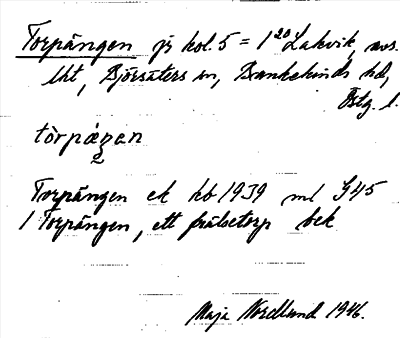 Torpängen jr kol. 5 = 1²⁰ Lakvik, avs.
lht, Björsäters sn, Bankekinds hd,
Östg. l.
tòrpæ̀ŋan
2
Torpängen ek kb 1939 ml G45
1 Torpängen, ett frälsetorp bek
Maja Nordlund 1946.